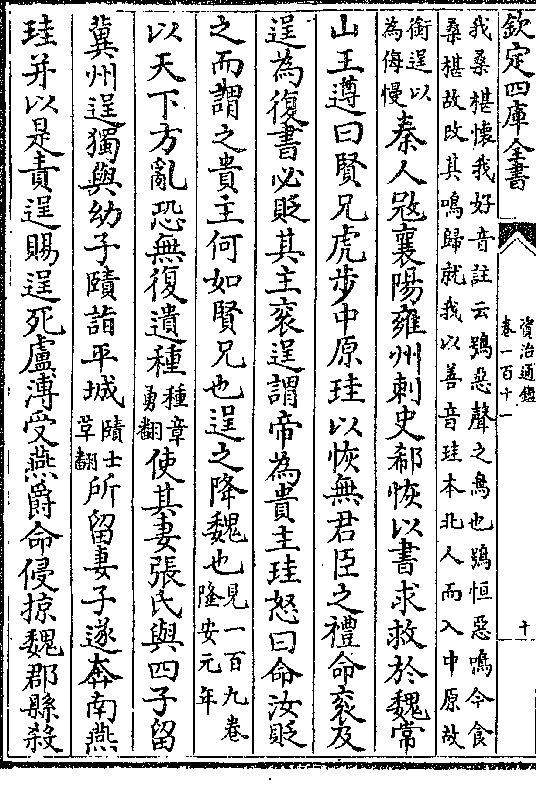 欽定四庫全書
資治通鑑
卷一百十一
十
我桑椹懷我好音註云鴞惡聲之鳥也鴞恒惡鳴今食
桑椹故改其鳴歸就我以善音珪本北人而入中原故
銜逞以為侮慢秦人寇襄陽雍州刺史郗恢以書求救於魏常
山王遵曰賢兄虎步中原珪以恢無君臣之禮命衮及
逞為復書必貶其主衮逞謂帝為貴主珪怒曰命汝貶
之而謂之貴主何如賢兄也逞之降魏也見一百九卷隆安元年
以天下方亂恐無復遺種種章勇翻使其妻張氏與四子留
冀州逞獨與幼子賾詣平城賾士革翻所留妻子遂奔南燕
珪并以是責逞賜逞死盧溥受燕爵命侵掠魏郡縣殺